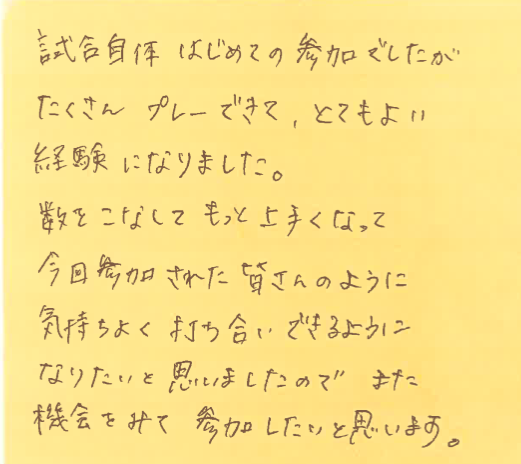 試合自体 はじめての 参加でしたが
たくさん プレーできて、とてもよい
経験になりました。
数をこなして もっと上手くなって
今回参加された 皆さんのように
気持ちよく 打ち合いできるように
なりたいと思いましたので また
機会をみて 参加したいと思います。